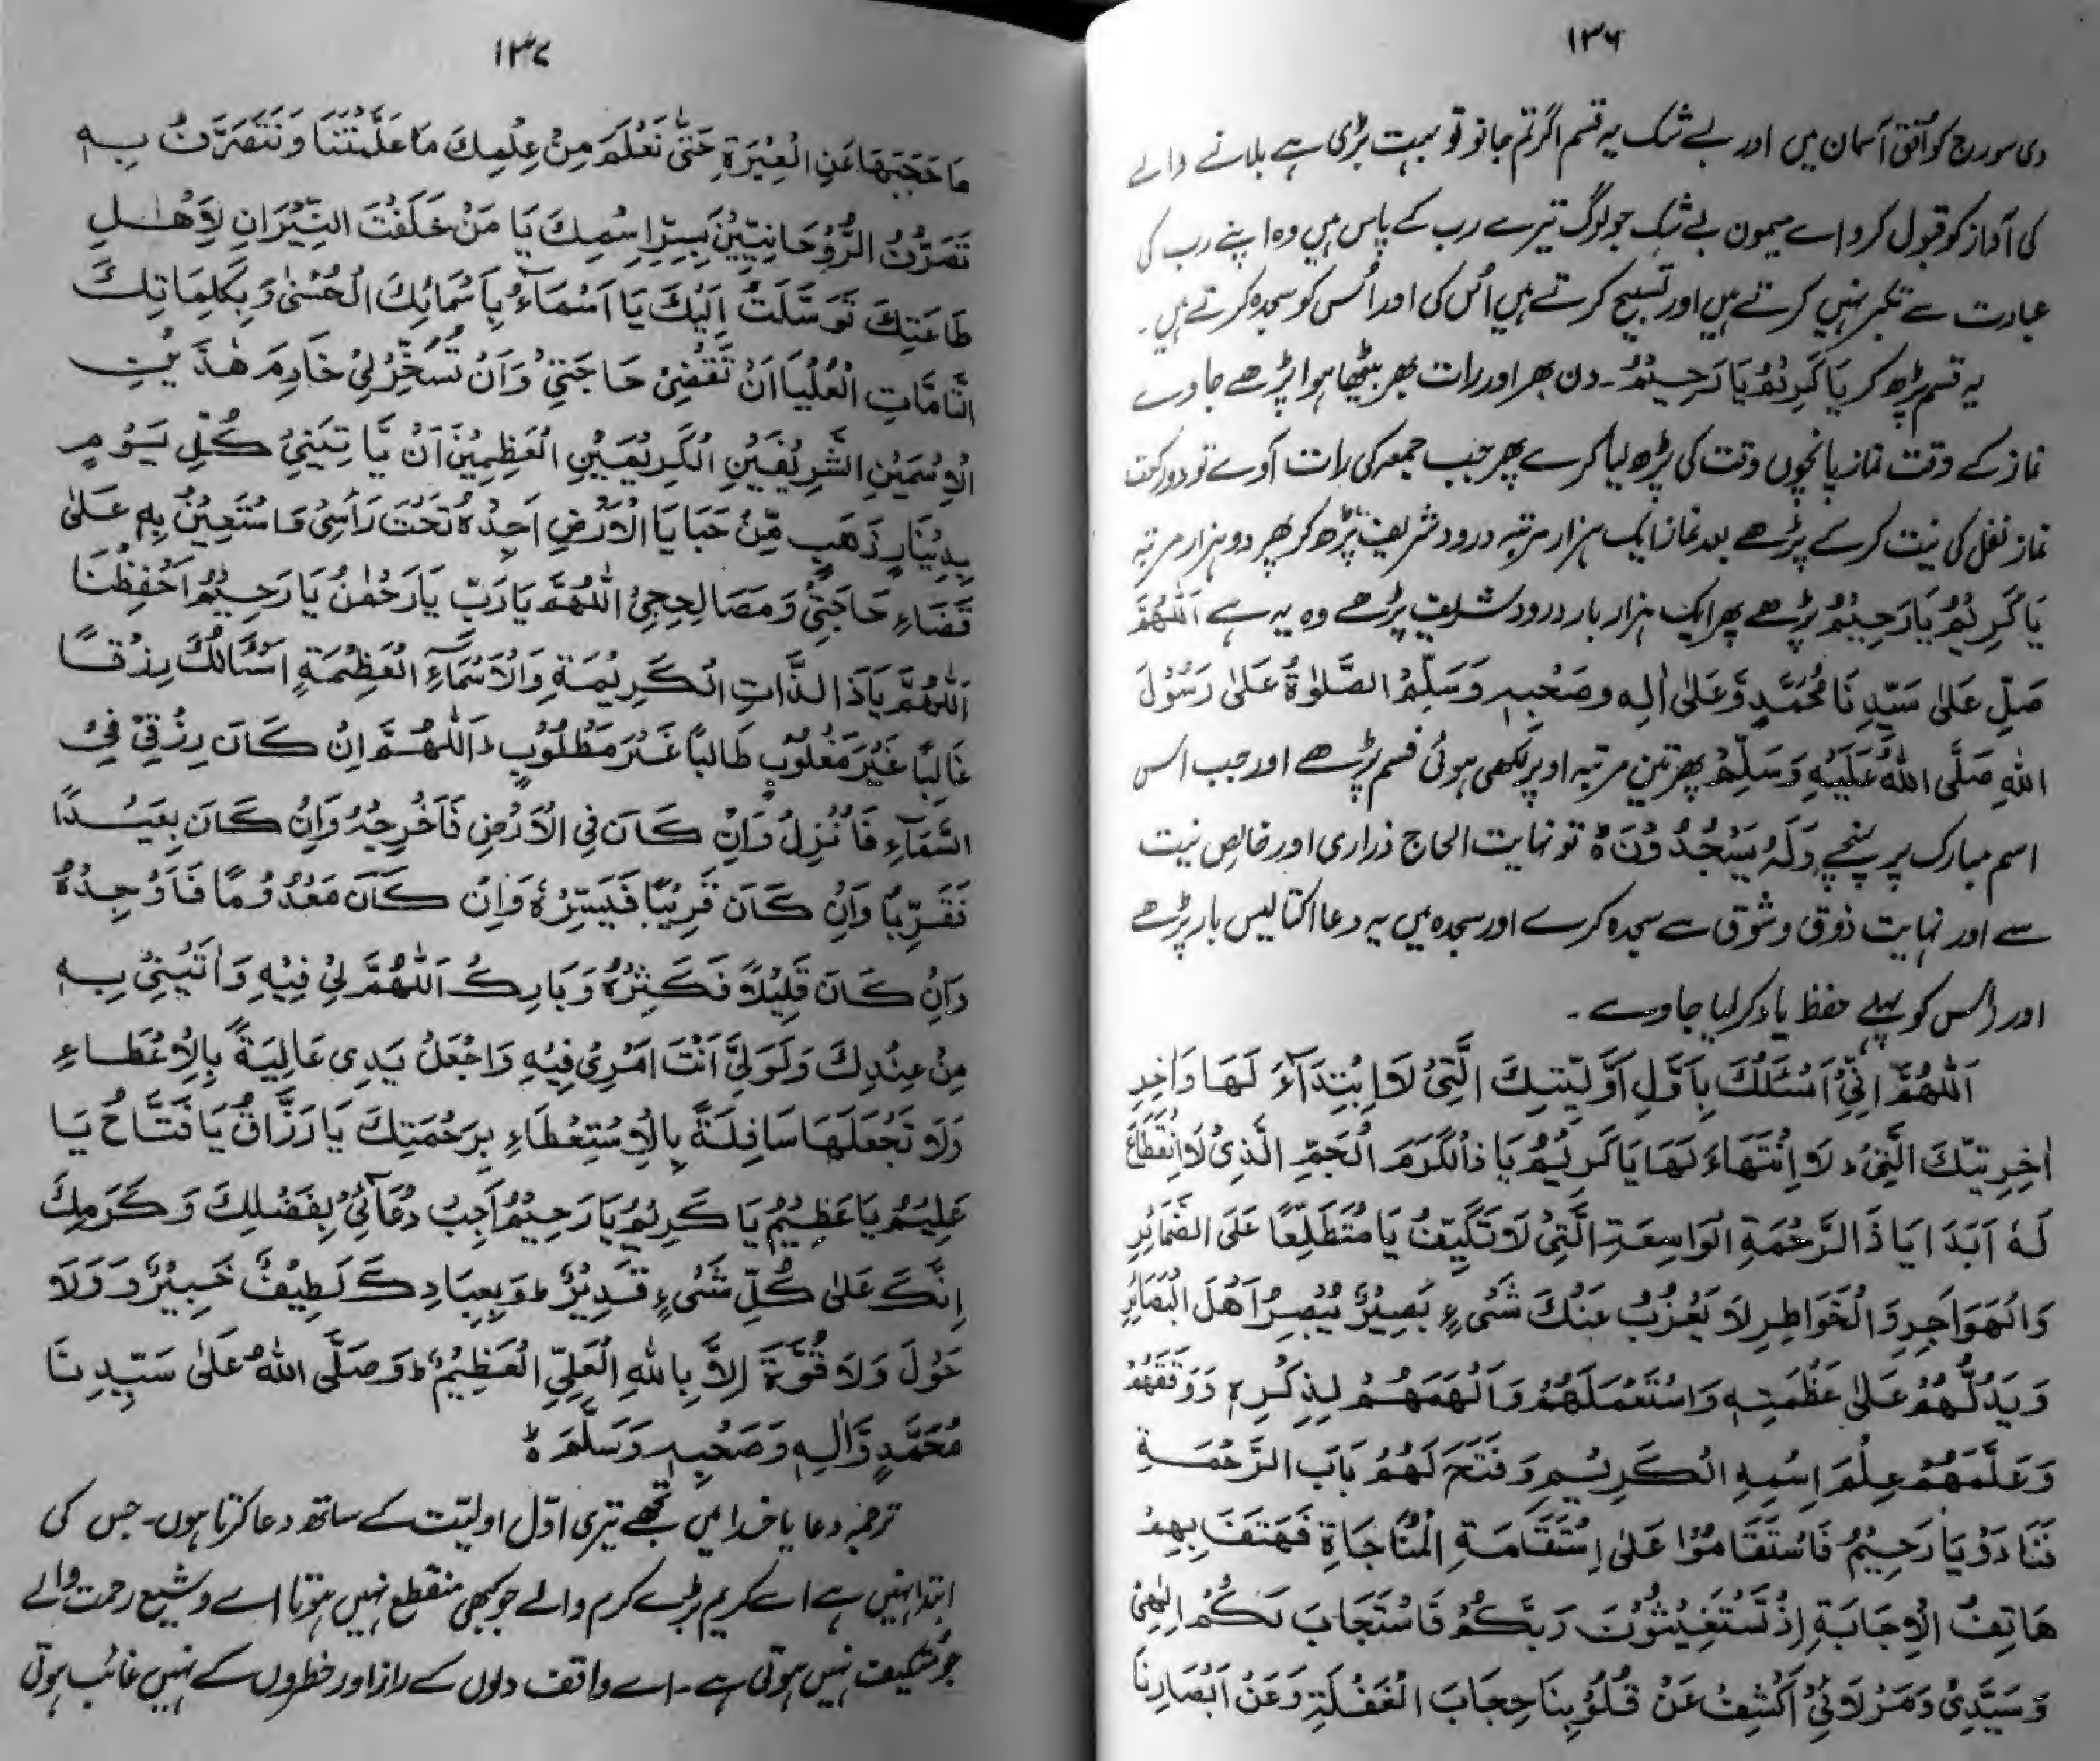 ۱۳۶
دی سورج کو اُفق آسمان میں اور بے شک یہ قسم اگر تم جانو تو بہت بڑی ہے بلانے والے
کی آواز کو قبول کرو اے میمون بے شک جو لوگ تیرے رب کے پاس ہیں وہ اپنے رب کی
عبادت سے تکبر نہیں کرتے ہیں اور تسبیح کرتے ہیں اُس کی اور اُس کو سجدہ کرتے ہیں۔
یہ قسم پڑھ کر یَا کَرِیْمُ یَا رَحِیْمُ۔ دن بھر اور رات بھر بیٹھا ہوا پڑھے جاوے
نماز کے وقت نماز پانچوں وقت کی پڑھ لیا کرے پھر جب جمعہ کی رات آوے تو دو رکعت
نماز نفل کی نیت کر کے پڑھے بعد نماز ایک ہزار مرتبہ درود شریف پڑھ کر پھر دو ہزار مرتبہ
یَا کَرِیْمُ یَا رَحِیْمُ پڑھے پھر ایک ہزار بار درود شریف پڑھے وہ یہ ہے اَللّٰهُمَّ
صَلِّ عَلٰى سَیِّدِنَا مُحَمَّدٍ وَّعَلٰى اٰلِهٖ وصَحْبِهٖ وَسَلِّمْ الصَّلٰوةُ عَلٰى رَسُوْلَ
اللهِ صَلَّى اللهُ عَلَیْهِ وَسَلِّمْ پھر تین مرتبہ اوپر لکھی ہوئی قسم پڑھے اور جب اس
اسم مبارک پر پہنچے وَلَهٗ یَسْجُدُوْنَ ۃ تو نہایت الحاح ذراری اور خالص نیت
سے اور نہایت ذوق و شوق سے سجدہ کرے اور سجدہ میں یہ دعا اکتالیس بار پڑھے
اور اس کو پہلے حفظ یاد کر لیا جاوے۔
اَللّٰهُمَّ اِنِّیْ اَسْئَلُكَ بِاَوَّلِ اَوَّلِیَّتِكَ الَّتِیْ لَا اِبْتِدَآءَ لَهَا وَاٰخِرِ
اٰخِرِیَّتِكَ الَّتِیْ لَا اِنْتَهَاءَ لَهَا یَا کَرِیْمُ یَا ذَالْکَرَمِ الْجَمِّ الَّذِیْ لَا انْقِطَاعَ
لَهٗ اَبَدَا یَا ذَا الرَّحْمَةِ الْوَاسِعَةِ الَّتِیْ لَا تَکَیَّفُ یَا مُتَطَلِّعًا عَلَى الضَّمَائِرِ
وَالْهَوَاجِرِ وَالْخَوَاطِرِ لَا یَعْزُبُ عَنْكَ شَیْءٍ بَصِیْرٌ یُبْصِرُ اَهْلَ الْبَصَائِرِ
وَیَدُلُّهُمْ عَلٰى عَظْمَتِهٖ وَاسْتَعْمَلَهُمْ وَاَلْهَمَهُمْ لِذِکْرِهٖ وَوَفَّقَهُمْ
وَعَلَّمَهُمْ عِلْمَ اِسْمِهِ الْکَرِیْمِ وَفَتَحَ لَهُمْ بَابَ الرَّحْمَةِ
فَنَادَوْ یَا رَحِیْمُ فَاسْتَقَامُوْا عَلٰى اِسْتَقَامَةِ الْمُنَاجَاةِ فَهَتَفَ بِهِمْ
هَاتِفُ الْاِجَابَةِ اِذْ تَسْتَغِیْثُوْنَ رَبَّکُمْ فَاسْتَجَابَ لَکُمْ اِلٰهِیْ
وَسَیِّدِیْ وَمَوْلَائِیْ اَکْشِفْ عَنْ قُلُوْبِنَا حِجَابَ الْغَفْلَةِ وَعَنْ اَبْصَارِنَا
۱۳۷
مَا حَجَبَهَا عَنِ الْعِبْرَةِ حَتّٰى نَعْلَمَ مِنْ عِلْمِكَ مَا عَلَّمْتَنَا وَنَتَصَرَّفُ بِهٖ
تَصَرُّفُ الرُّوْحَانِیِّیْنَ بِسِرِّ اِسْمِكَ یَا مَنْ خَلَقْتَ النِّیْرَانِ لِاَهْلِ
طَاعَتِكَ تَوَسَّلْتُ اِلَیْكَ یَا اَسْمَاءُ بِاَسْمَائِكَ الْحُسْنٰى وَبِکَلِمَاتِكَ
التَّامَّاتِ الْعُلْیَا اَنْ تَقْضِیْ حَاجَتِیْ وَاَنْ تُسَخِّرْلِیْ خَادِمَ هٰذَیْنِ
الْاِسْمَیْنِ الشَّرِیْفَیْنِ الْکَرِیْمَیْنِ الْعَظِیْمَیْنِ اَنْ یَّاتِیَنِیْ کُلِّ یَوْمٍ
بِدِیْنَارٍ ذَهَبٍ مِّنْ خَبَایَا الْاَرْضِ اَجِدُهٗ تَحْتَ رَاْسِیْ فَاسْتَعِیْنُ بِهٖ عَلٰى
قَضَاءِ حَاجَتِیْ وَمَصَالِحِیْ اَللّٰهُمَّ یَا رَبِّ یَا رَحْمٰنُ یَا رَحِیْمُ اَحْفِظْنَا
اَللّٰهُمَّ یَا ذَا الذَّاتِ الْکَرِیْمَةِ وَالْاَسْمَآءِ الْعَظِیْمَةِ اَسْئَالُكَ رِزْقًا
غَالِبًا غَیْرَ مَغْلُوْبٍ طَالِبًا غَیْرَ مَطْلُوْبٍ اَللّٰهُمَّ اِنْ کَانَ رِزْقِیْ فِیْ
السَّمَآءِ فَاَنْزِلْ وَاِنْ کَانَ فِی الْاَرْضِ فَاَخْرِجْهُ وَاِنْ کَانَ بَعِیْدًا
فَقَرِّبْ وَاِنْ کَانَ قَرِیْبًا فَیَسِّرْهُ وَاِنْ کَانَ مَعْدُوْمًا فَاَوْجِدْهُ
وَاِنْ کَانَ قَلِیْلًا فَکَثِّرْهُ وَبَارِكْ اَللّٰهُمَّ لِیْ فِیْهِ وَاٰتِیْنِیْ بِهٖ
مِنْ عِنْدِكَ وَلَوَلِیَّ اَنْتَ اَمْرِیْ فِیْهِ وَاجْعَلْ یَدِی عَالِیَةً بِالْاِعْطَاءِ
وَلَا تَجْعَلْهَا سَافِلَةً بِالْاِسْتِعْطَاءِ بِرَحْمَتِكَ یَا رَزَّاقُ یَا فَتَّاحُ یَا
عَلِیْمُ یَا عَظِیْمُ یَا کَرِیْمُ یَا رَحِیْمُ اَجِبْ دُعَآئِیْ بِفَضْلِكَ وَکَرَمِكَ
اِنَّكَ عَلٰى کُلِّ شَیْءٍ قَدِیْرٌ وَبِعِبَادِكَ لَطِیْفٌ خَبِیْرٌ وَلَا
حَوْلَ وَلَا قُوَّةَ اِلَّا بِاللهِ الْعَلِیِّ الْعَظِیْمِ وَصَلَّى اللهُ عَلٰى سَیِّدِنَا
مُحَمَّدٍ وَّاٰلِهٖ وَصَحْبِهٖ وَسَلَّمَ ط
ترجمہ دعا یا خدا میں تجھے تیری اوّل اولیّت کے ساتھ دعا کرتا ہوں۔ جس کی
ابتدا نہیں ہے اے کریم بڑے کرم والے جو کبھی منقطع نہیں ہوتا اے وسیع رحمت والے
جو تکیف نہیں ہوتی ہے۔ اے واقف دلوں کے راز اور خطروں کے نہیں غائب ہوتی